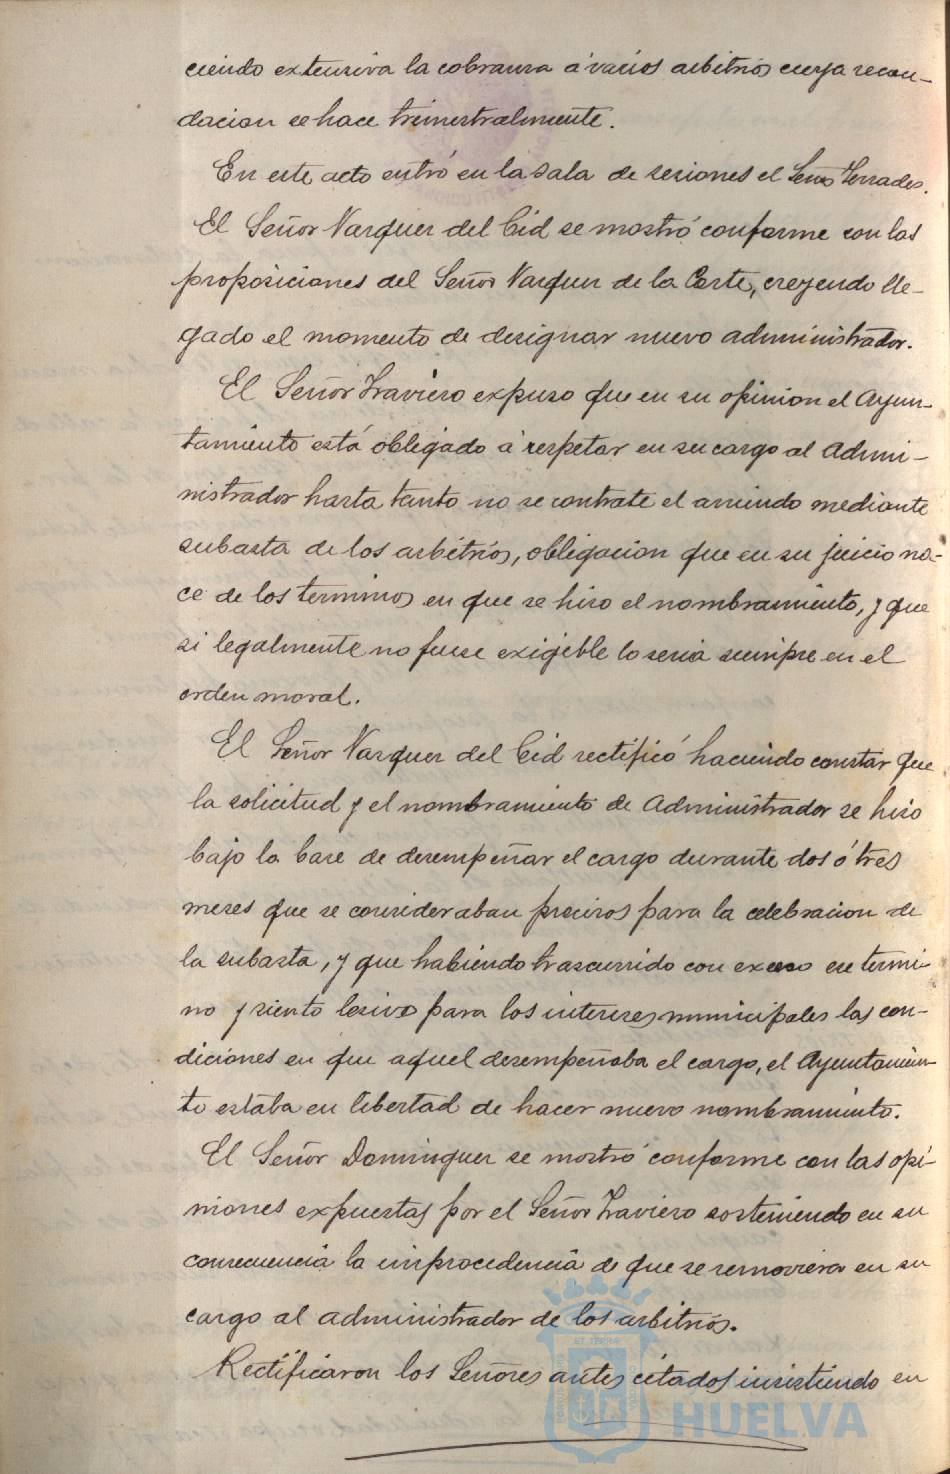 ciendo extensiva la cobranza á varios arbitrios cuya recau-
dacion se hace trimestralmente.
En este acto entró en la sala de sesiones el Señor Terrades.
El Señor Vazquez del Cid se mostró conforme con las
proposiciones del Señor Vazquez de la Corte, creyendo lle-
gado el momento de designar nuevo administrador.
El Señor Traviero expuso que en su opinion el Ayun-
tamiento está obligado á respetar en su cargo al Admi-
nistrador hasta tanto no se contrate el arriendo mediante
subasta de los arbitrios, obligacion que en su juicio na-
ce de los terminos en que se hizo el nombramiento, y que
si legalmente no fuese exigible lo seria siempre en el
orden moral.
El Señor Vazquez del Cid rectificó haciendo constar que
la solicitud y el nombramiento de Administrador se hizo
bajo la base de desempeñar el cargo durante dos ó tres
meses que se consideraban precisos para la celebracion de
la subasta, y que habiendo trascurrido con exceso ese termi-
no y siento lesivo para los intereses municipales las con-
diciones en que aquel desempeñaba el cargo, el Ayuntamien-
to estaba en libertad de hacer nuevo nombramiento.
El Señor Dominguez se mostró conforme con las opi-
niones expuestas por el Señor Traviero sosteniendo en su
consecuencia la improcedencia de que se removiera en su
cargo al administrador de los arbitrios.
Rectificaron los Señores antes citados insistiendo en
HUELVA